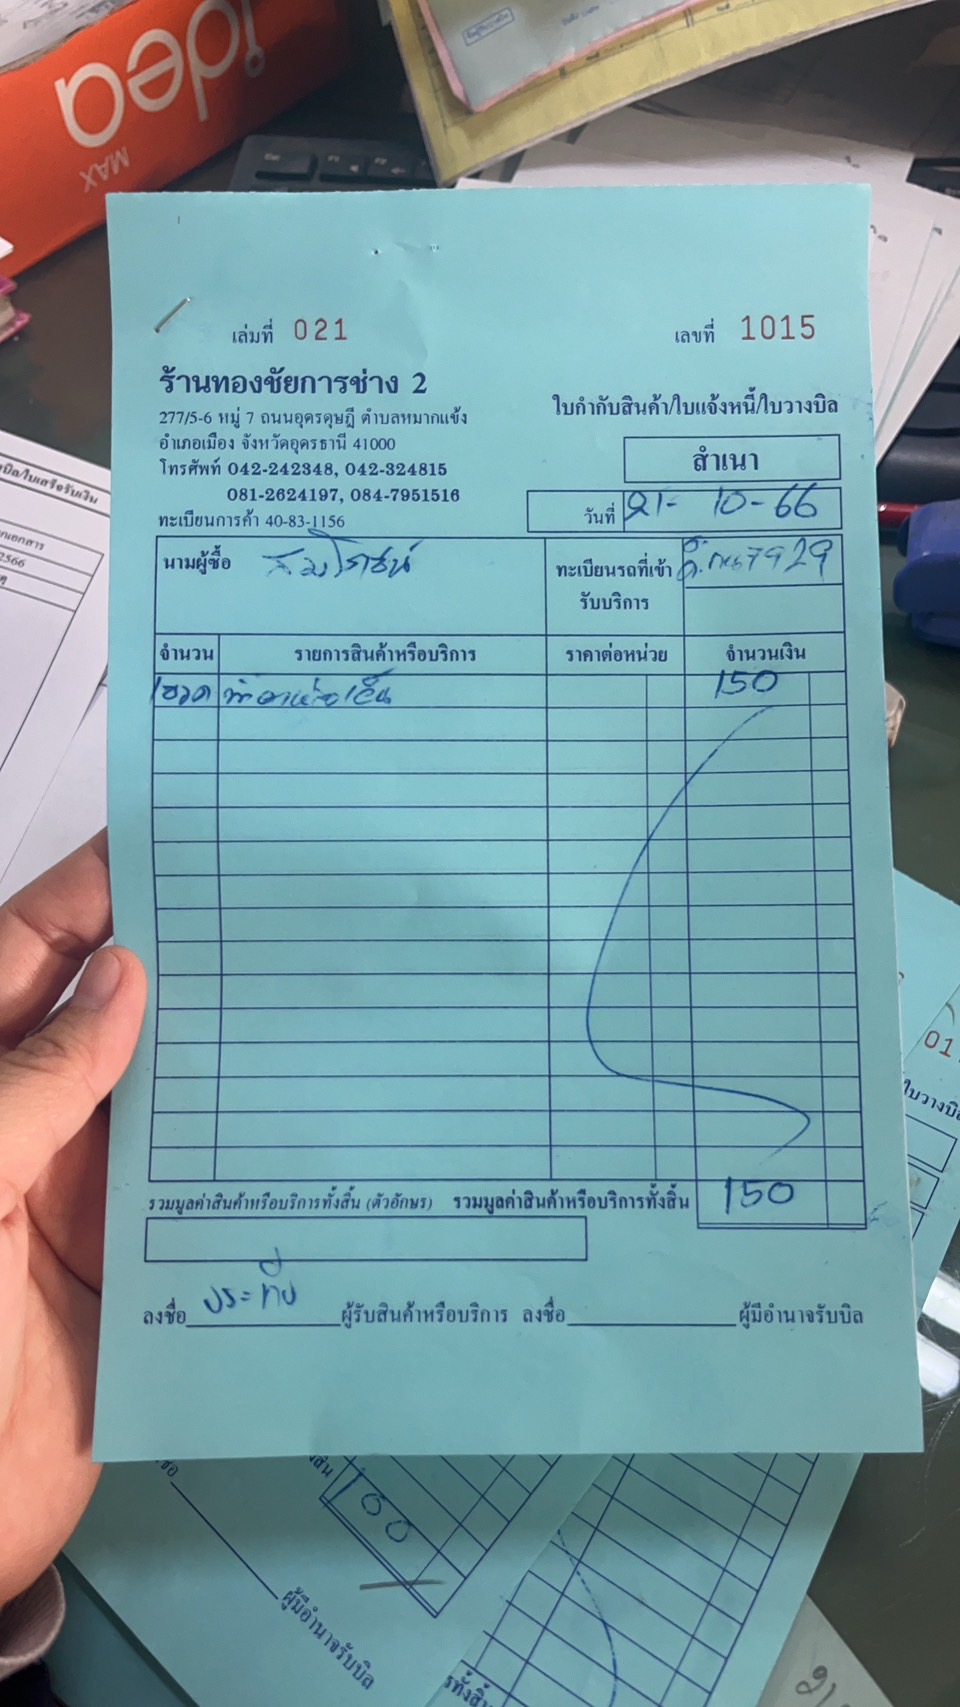 idea
MAX
เล่มที่ 021
เลขที่ 1015
ร้านทองชัยการช่าง 2
277/5-6 หมู่ 7 ถนนอุดรดุษฎี ตำบลหมากแข้ง
อำเภอเมือง จังหวัดอุดรธานี 41000
โทรศัพท์ 042-242348, 042-324815
081-2624197, 084-7951516
ทะเบียนการค้า 40-83-1156
ใบกำกับสินค้า/ใบแจ้งหนี้/ใบวางบิล
สำเนา
วันที่ 21-10-66
นามผู้ซื้อ สมโภชน์
ทะเบียนรถที่เข้ารับบริการ 7929
จำนวน รายการสินค้าหรือบริการ ราคาต่อหน่วย จำนวนเงิน
1ขวด น้ำยาหล่อเย็น 150
รวมมูลค่าสินค้าหรือบริการทั้งสิ้น (ตัวอักษร) รวมมูลค่าสินค้าหรือบริการทั้งสิ้น 150
ลงชื่อ ประทีป ผู้รับสินค้าหรือบริการ ลงชื่อ ผู้มีอำนาจรับบิล
100
ผู้มีอำนาจรับบิล